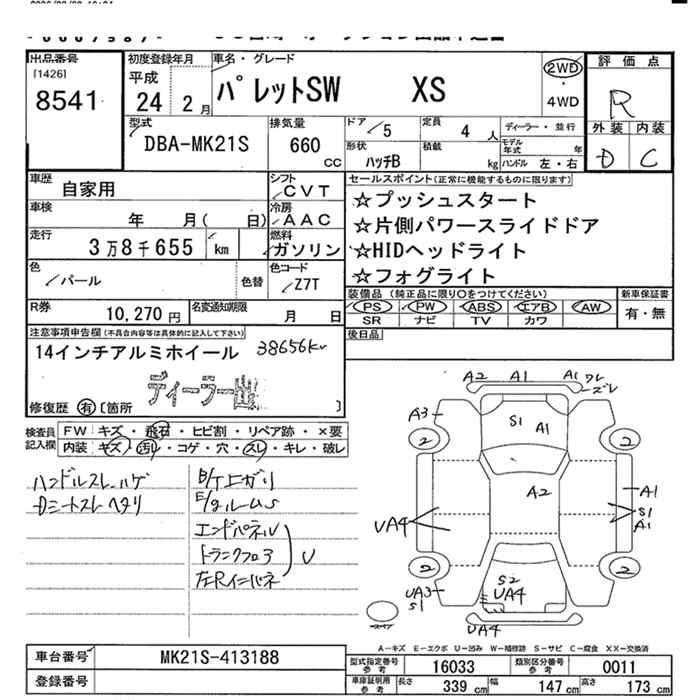 出品番号 初度登録年月 車名・グレード 評価点
[1426] 平成 パレットSW XS 2WD
8541 24 年 2 月 ・ 4WD R
型式 排気量 ドア 定員 ディーラー・並行 外装 内装
DBA-MK21S 660 CC 5 4 人 モデル年式 年 D C
形状 積載
ハッチB kg ハンドル 左・右
車歴 シフト セールスポイント(正常に機能するものに限ります)
自家用 CVT ☆プッシュスタート
車検 冷房 ☆片側パワースライドドア
年 月( 日) AAC
走行 燃料 ☆HIDヘッドライト
3万8千655 km ガソリン
色 色替 色コード ☆フォグライト
パール Z7T
R券 名変通知期限 装備品(純正品に限り○をつけてください) 新車保証書
10,270円 月 日 PS PW ABS エアB AW 有・無
SR ナビ TV カワ
注意事項申告欄(不具合内容等は具体的に記入して下さい) 後日品
14インチアルミホイール 38656km
ディーラー出
修復歴 有 [箇所 ]
検査員 FW キズ・飛石・ヒビ割・リペア跡・×要
記入欄 内装 キズ・汚れ・コゲ・穴・スレ・キレ・破レ
ハンドルスレ ハゲ
Dシートスレ ヘタリ
エンドパネル
トランクフロア U
左Rインパネ
A2 A1 A1
A3 S1 A1
2 2
A2 A1
UA4 S1
A1
2 2
UA3 S2
S1 UA4
UA4
スペア
A-キズ E-エクボ U-凹み W-補修跡 S-サビ C-腐食 XX-交換済
車台番号 MK21S-413188 型式指定番号 参考 16033 類別区分番号 参考 0011
登録番号 車庫証明用 参考 長さ 339 cm 幅 147 cm 高さ 173 cm